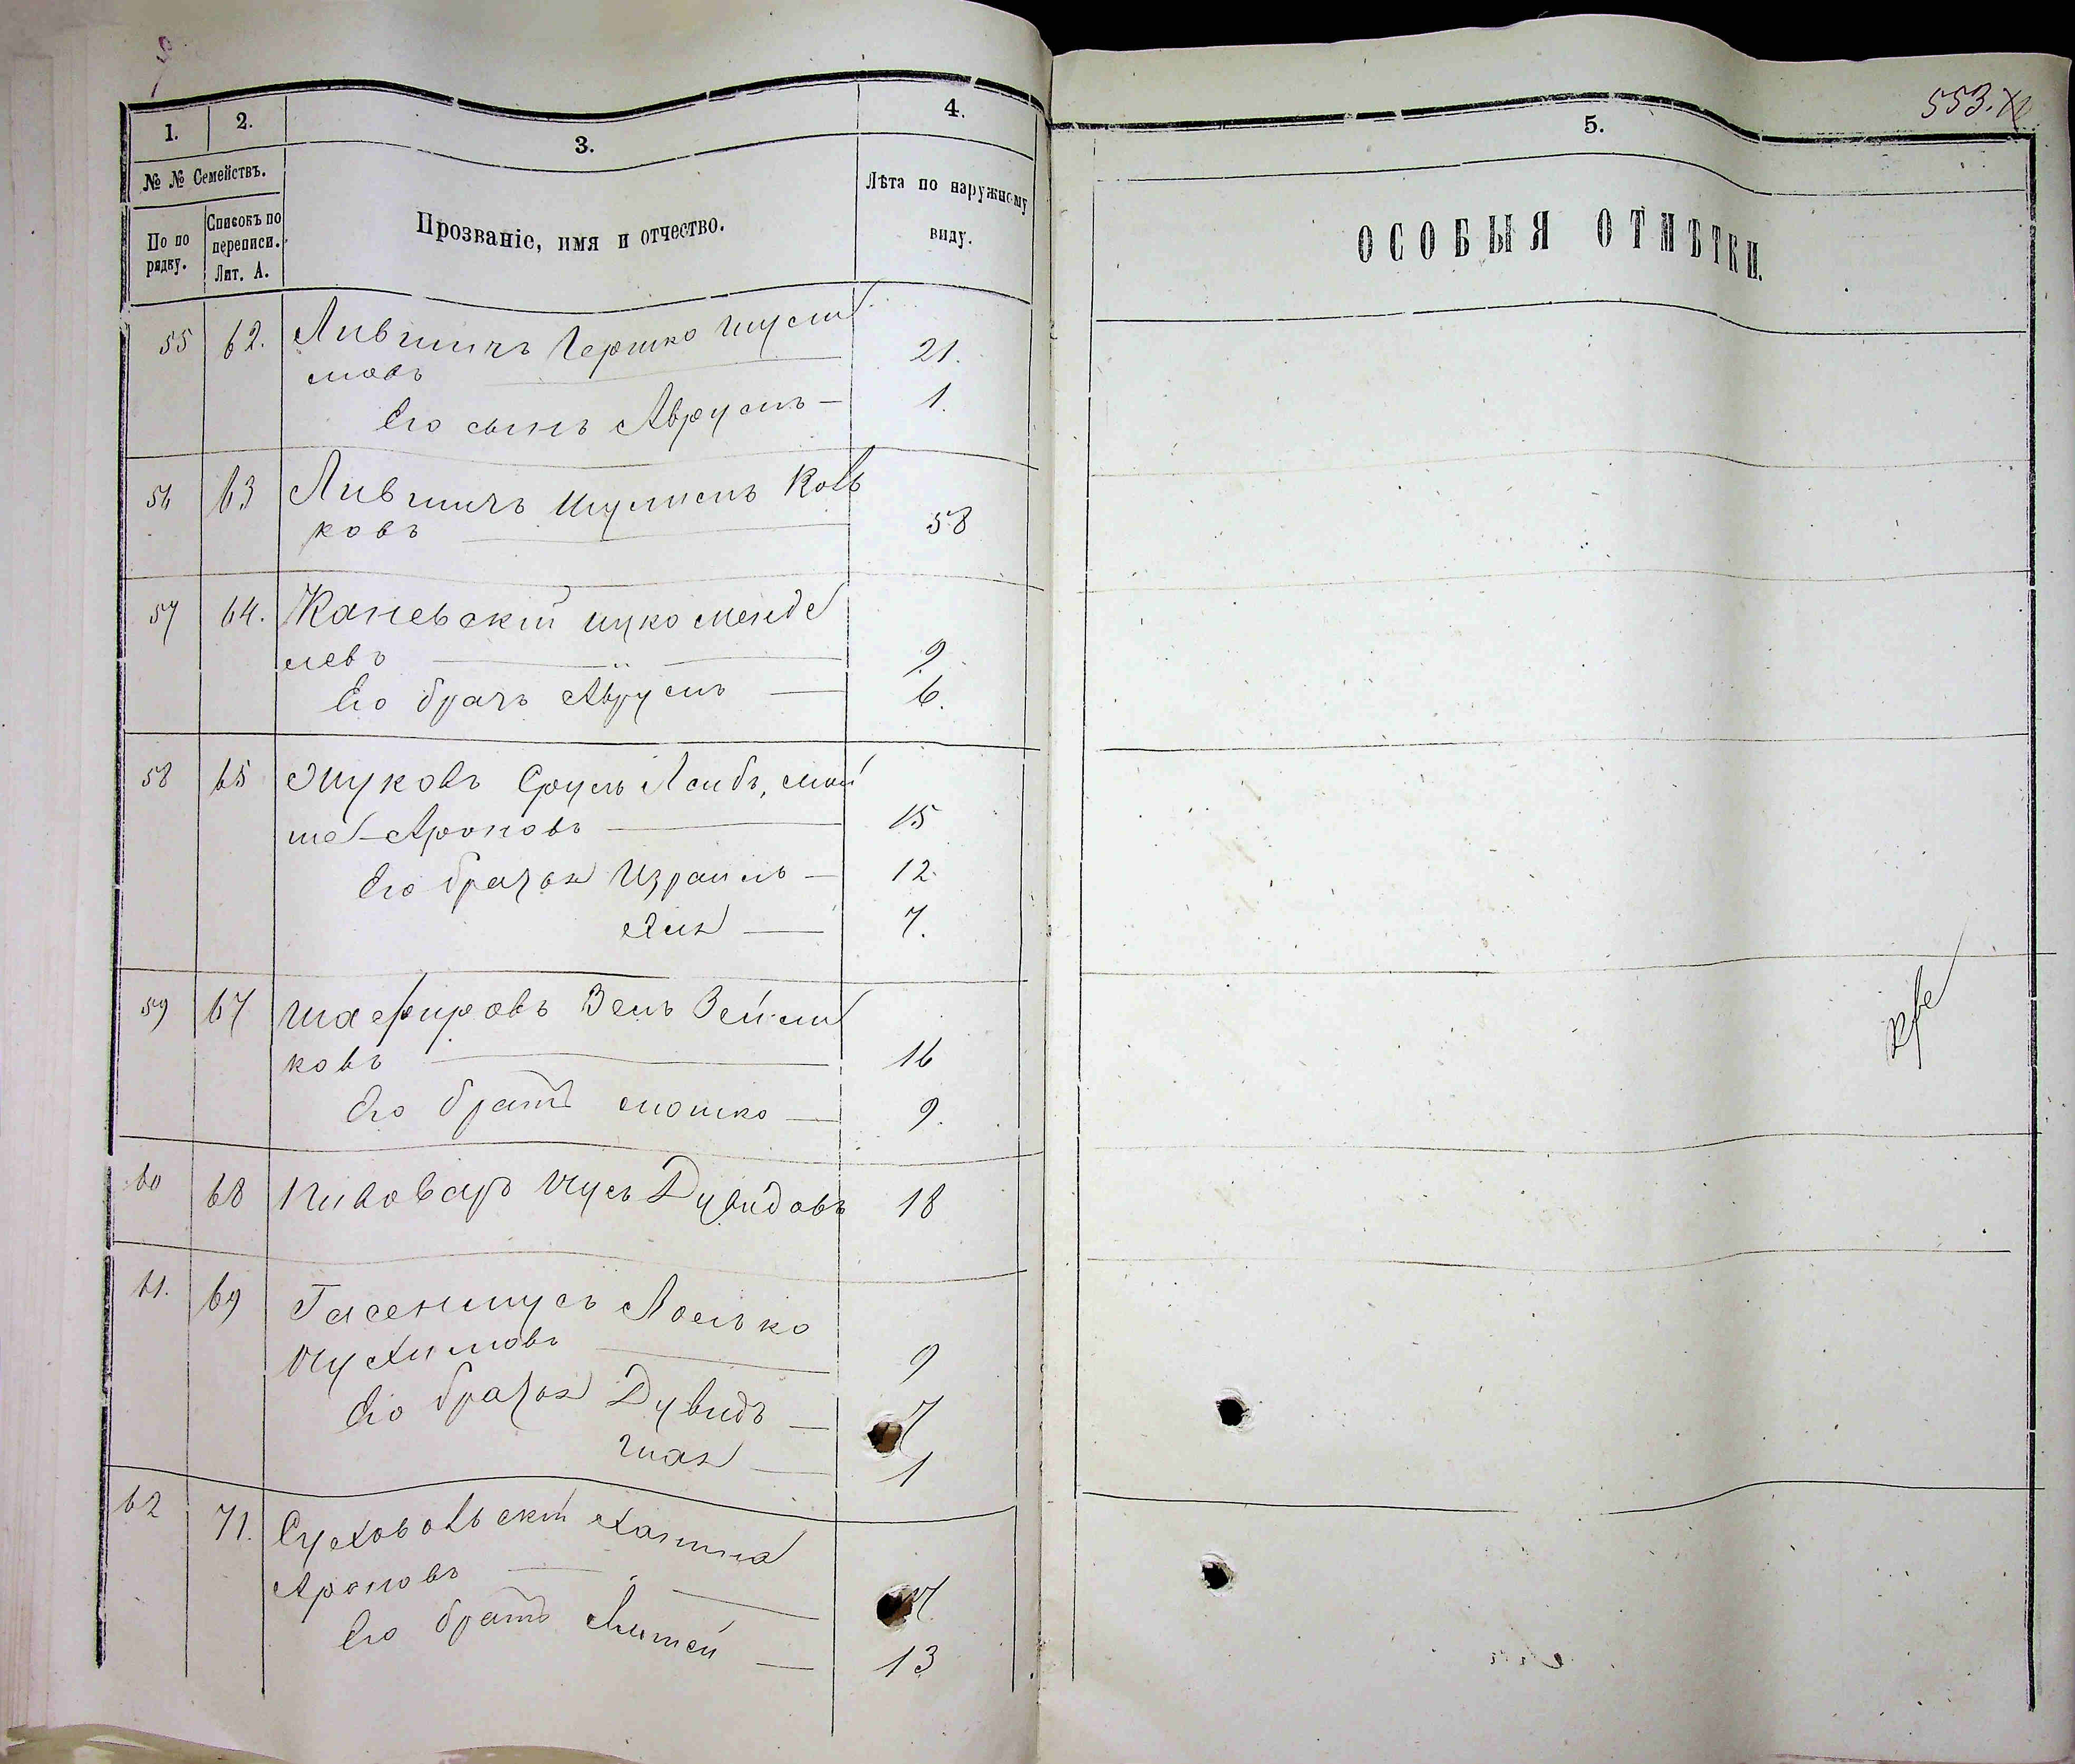 553.
1. 2. 3. 4. 5.
№ № Семействъ.
По по
рядку.
Списокъ по
переписи.
Лит. А.
Прозваніе, имя и отчество.
Лѣта по наружному
виду.
ОСОБЫЯ ОТМѢТКИ.
55 62. Лившичъ Гершко Шули
мовъ 21.
Его сынъ Аврумъ 1.
56 63 Лившичъ Шулимъ Коль
ковъ 58
57 64. Каневскій Ицко Менде
левъ 9.
Его братъ Аврумъ 6.
58 65 Жуковъ Сруль Лейбъ, Мой
ше Ароновъ 15
Его братья Израиль 12.
7.
59 67 Шафировъ Вель Зейли
ковъ 16
Его братъ Мошко 9.
60 68 Пивоваръ Иусъ Дувидовъ 18
61. 69 Гасенпусъ Іосько
Нухимовъ 9
Его братья Дувидъ 7
1
62 71. Суховольскій
Ароновъ
Его братъ 13